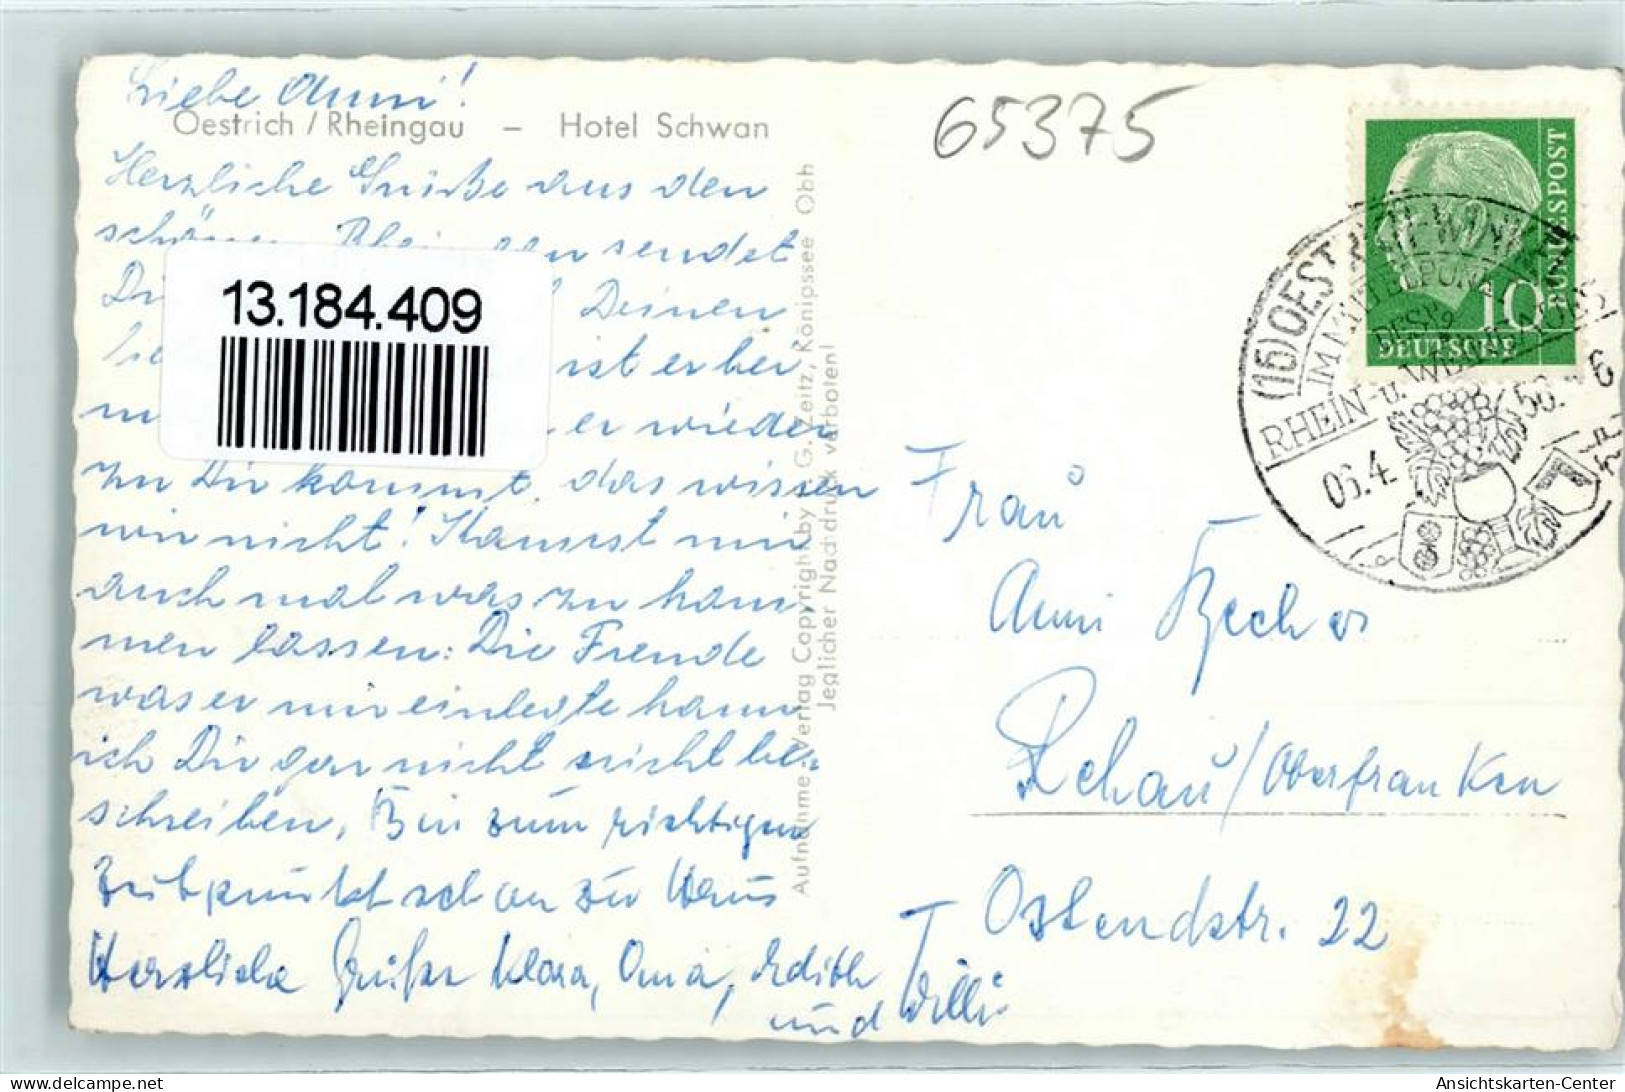 Liebe Anni!
Oestrich / Rheingau – Hotel Schwan
Herzliche Grüße aus den
sendet
Deinen
ist er bei
er wieder
zu Dir kommt, das wissen
wir nicht! Kannst mir
auch mal was zu kom-
men lassen: Die Freude
was er mir einlegte kann
ich Dir gar nicht be-
schreiben, Bin zum richtigen
Zeitpunkt schon zu Haus
Herzliche Grüße Klara, Oma, Edith
und Willi
Aufnahme u. Verlag Copyright by G. Zeitz, Königssee Obb
Jeglicher Nachdruck verboten!
13.184.409
65375
DEUTSCHE
BUNDESPOST
10
(16) OESTRICH-WINKEL
IM MITTELPUNKT
DES
RHEIN- u. WEINGAUES
06.4. 56.
Frau
Anni Becher
Rehau/Oberfranken
Ostendstr. 22
Ansichtskarten-Center